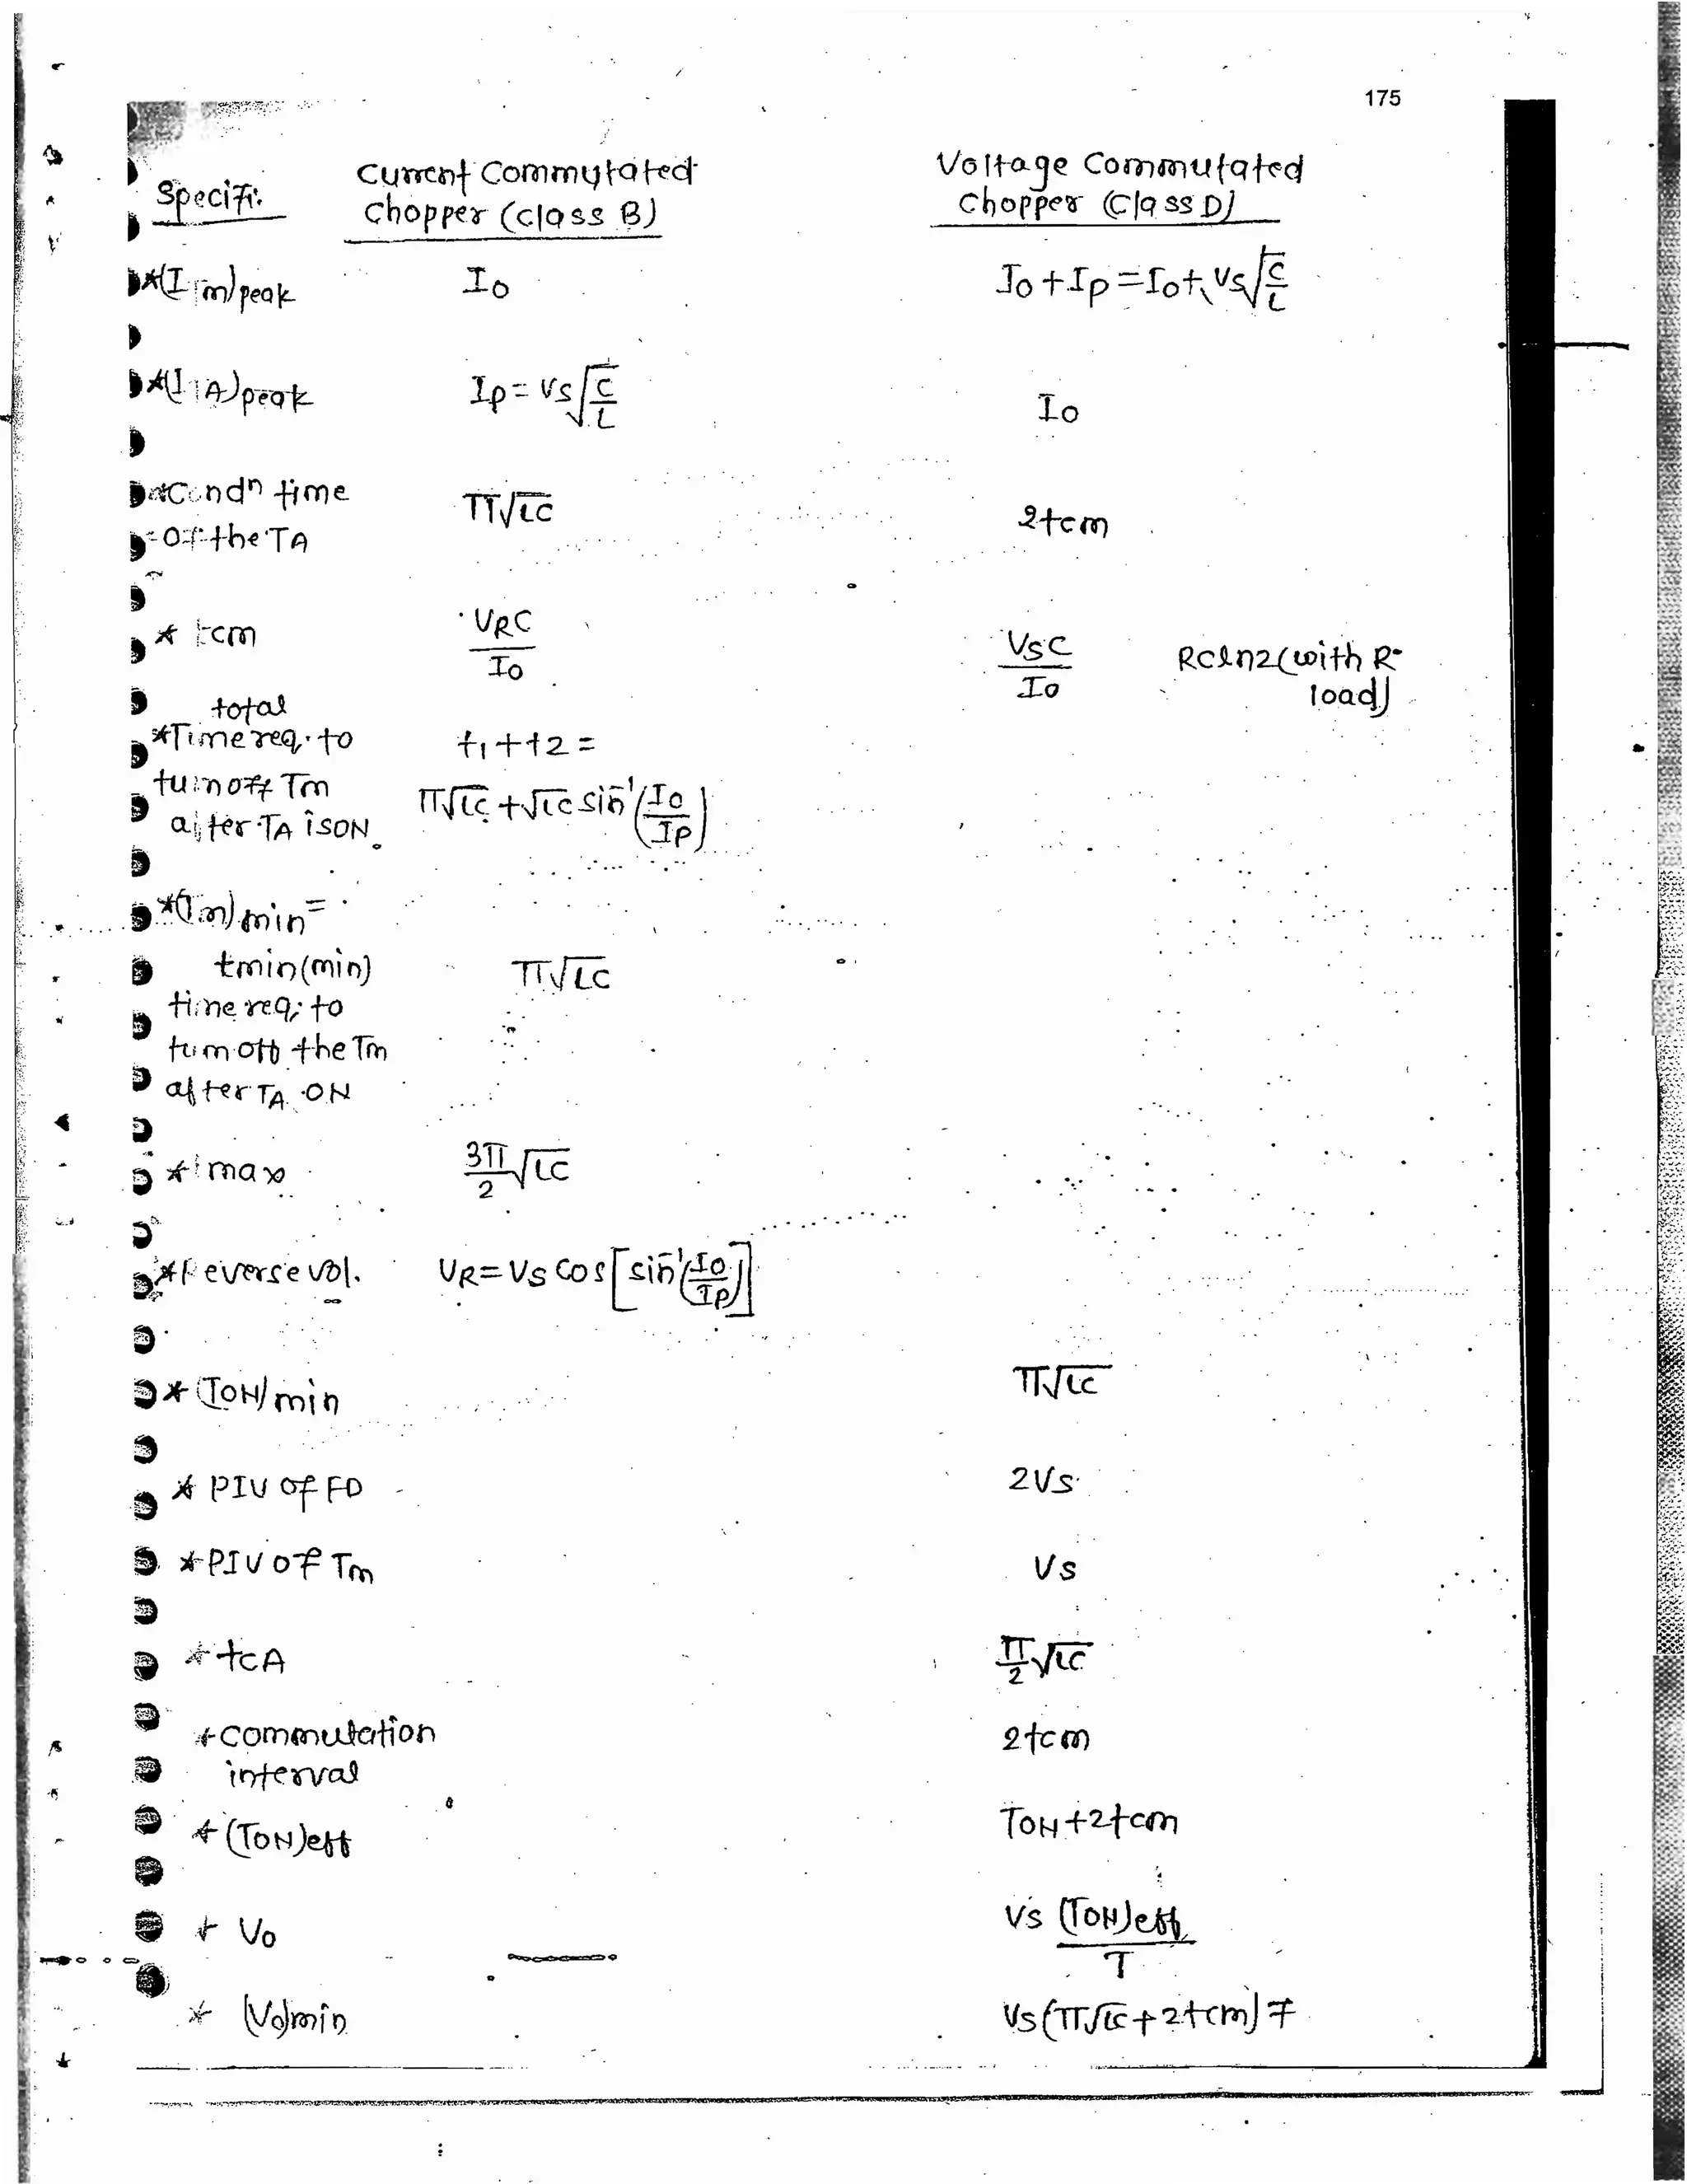 175
Specifi:
Current Commutated
Chopper (class B)
Voltage Commutated
Chopper (Class D)
*(ITm)peak
Io
Io + Ip = Io + Vs√(C/L)
*(ITA)peak
Ip = Vs√(C/L)
Io
*Condn time
of the TA
π√LC
2tcm
* tcm
VRC/Io
VsC/Io
RCln2 (with R-
load)
total
*Time req. to
turn off Tm
after TA is ON.
t1 + t2 =
π√LC + √LC sin⁻¹(Io/Ip)
*(Tm)min =
tmin(min)
time req; to
turn off the Tm
after TA ON
π√LC
* tmax
3π/2 √LC
*Reverse vol.
VR = Vs cos[sin⁻¹(Io/Ip)]
* (TON)min
π√LC
* PIV of FD
2Vs
* PIV of Tm
Vs
* tcA
π/2 √LC
* commutation
interval
2tcm
* (TON)eff
TON + 2tcm
* Vo
Vs (TON)eff / T
* (Vo)min
Vs(π√LC + 2tcm)